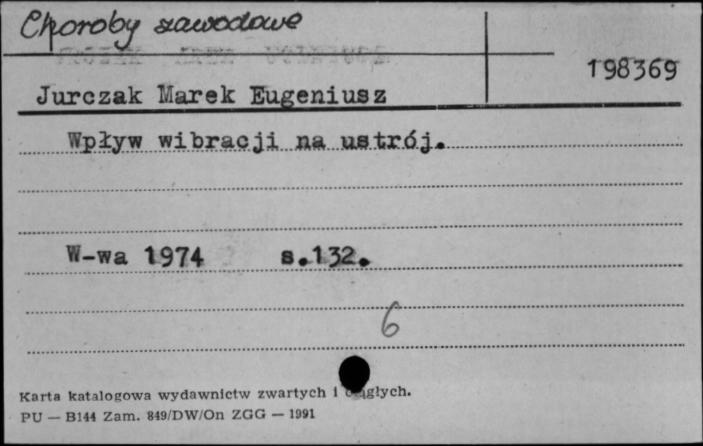 Choroby zawodowe
198369
Jurczak Marek Eugeniusz
Wpływ wibracji na ustrój.
W-wa 1974 s.132.
6
Karta katalogowa wydawnictw zwartych i ciągłych.
PU — B144 Zam. 849/DW/On ZGG — 1991